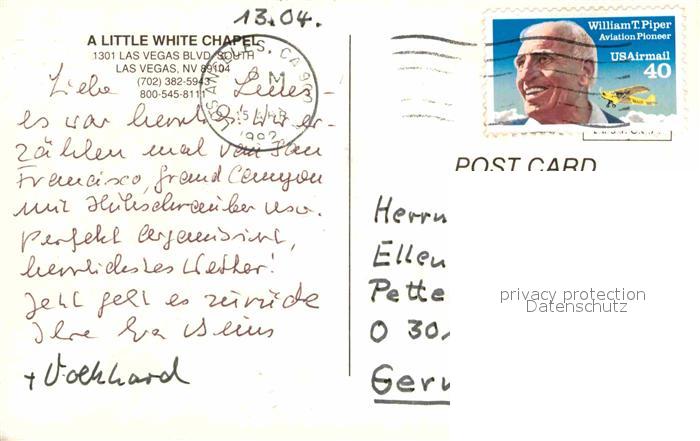 13.04.
A LITTLE WHITE CHAPEL
1301 LAS VEGAS BLVD. SOUTH
LAS VEGAS, NV 89104
(702) 382-5943
800-545-8111
LOS ANGELES, CA 900
PM
1992
William T. Piper
Aviation Pioneer
USAirmail
40
POST CARD
Liebe
es war herrlich. Wir er-
zählen mal von San
Francisco, Grand Canyon
mit Hubschrauber usw.
Perfekt organisiert,
herrlichstes Wetter!
Jetzt geht es zurück
Ihre Eva
+ Volkhard
Herrn
Ellen
Pette
O 30
Germ
privacy protection
Datenschutz